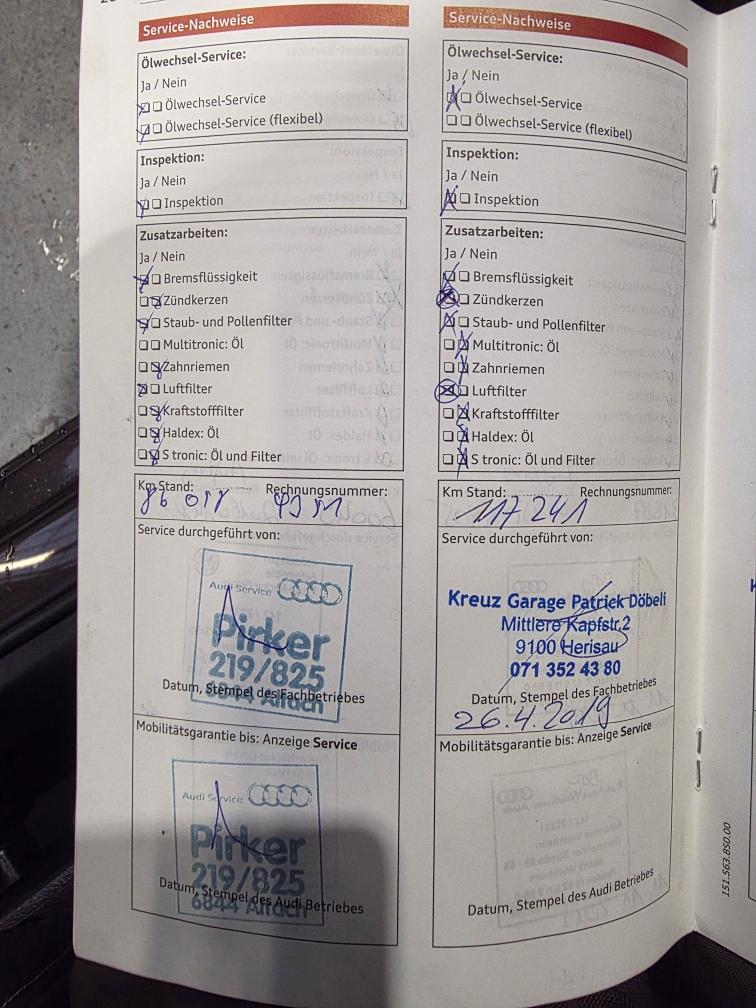 Service-Nachweise
Ölwechsel-Service:
Ja / Nein
Ölwechsel-Service
Ölwechsel-Service (flexibel)
Inspektion:
Ja / Nein
Inspektion
Zusatzarbeiten:
Ja / Nein
Bremsflüssigkeit
Zündkerzen
Staub- und Pollenfilter
Multitronic: Öl
Zahnriemen
Luftfilter
Kraftstofffilter
Haldex: Öl
S tronic: Öl und Filter
Km Stand: Rechnungsnummer:
Service durchgeführt von:
Audi Service
Pirker
219/825
6844 Altach
Datum, Stempel des Fachbetriebes
Mobilitätsgarantie bis: Anzeige Service
Audi Service
Pirker
219/825
6844 Altach
Datum, Stempel des Audi Betriebes
Service-Nachweise
Ölwechsel-Service:
Ja / Nein
Ölwechsel-Service
Ölwechsel-Service (flexibel)
Inspektion:
Ja / Nein
Inspektion
Zusatzarbeiten:
Ja / Nein
Bremsflüssigkeit
Zündkerzen
Staub- und Pollenfilter
Multitronic: Öl
Zahnriemen
Luftfilter
Kraftstofffilter
Haldex: Öl
S tronic: Öl und Filter
Km Stand: Rechnungsnummer:
117 241
Service durchgeführt von:
Kreuz Garage Patrick Döbeli
Mittlere Kapfstr.2
9100 Herisau
071 352 43 80
Datum, Stempel des Fachbetriebes
26.4.2019
Mobilitätsgarantie bis: Anzeige Service
Datum, Stempel des Audi Betriebes
151.563.850.00